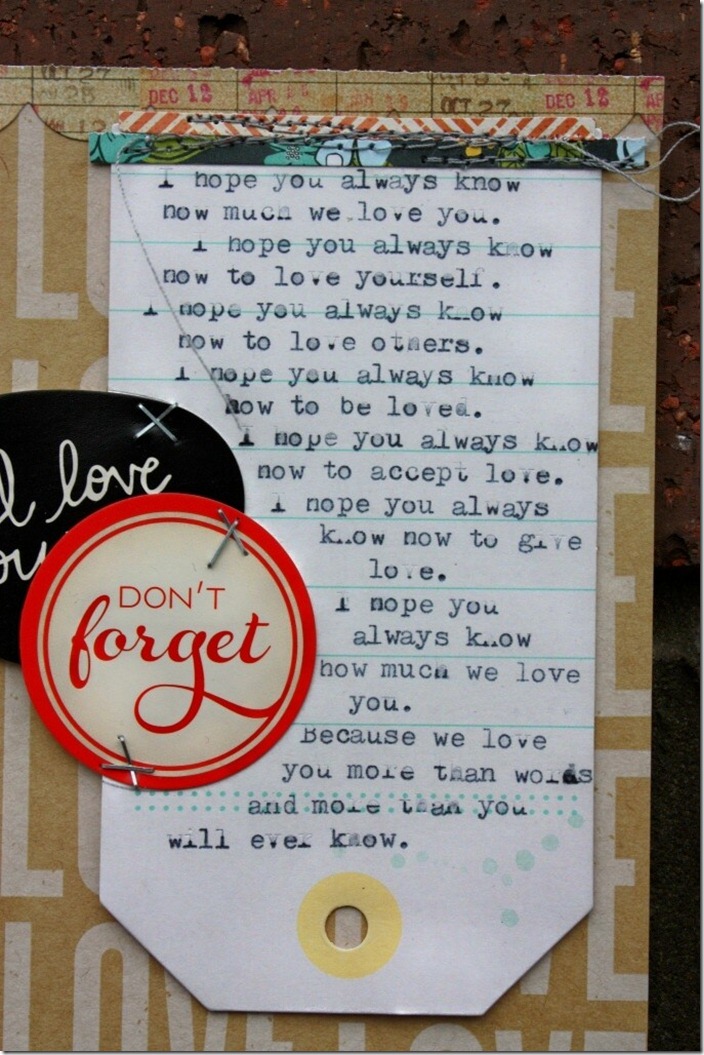 OCT 27 DEC 12 APR OCT 27 DEC 12 AP
28
I hope you always know
how much we love you.
I hope you always know
how to love yourself.
I hope you always know
how to love others.
I hope you always know
how to be loved.
I hope you always know
how to accept love.
I hope you always
know how to give
love.
I hope you
always know
how much we love
you.
Because we love
you more than words
and more than you
will ever know.
love
DON'T
forget
LOVE
LOVE